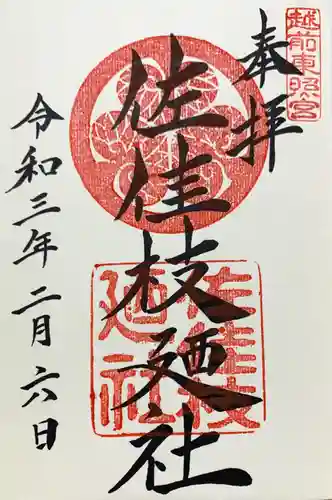 越前東照宮
奉拝
佐佳枝廼社
佐佳枝廼社
令和三年二月六日